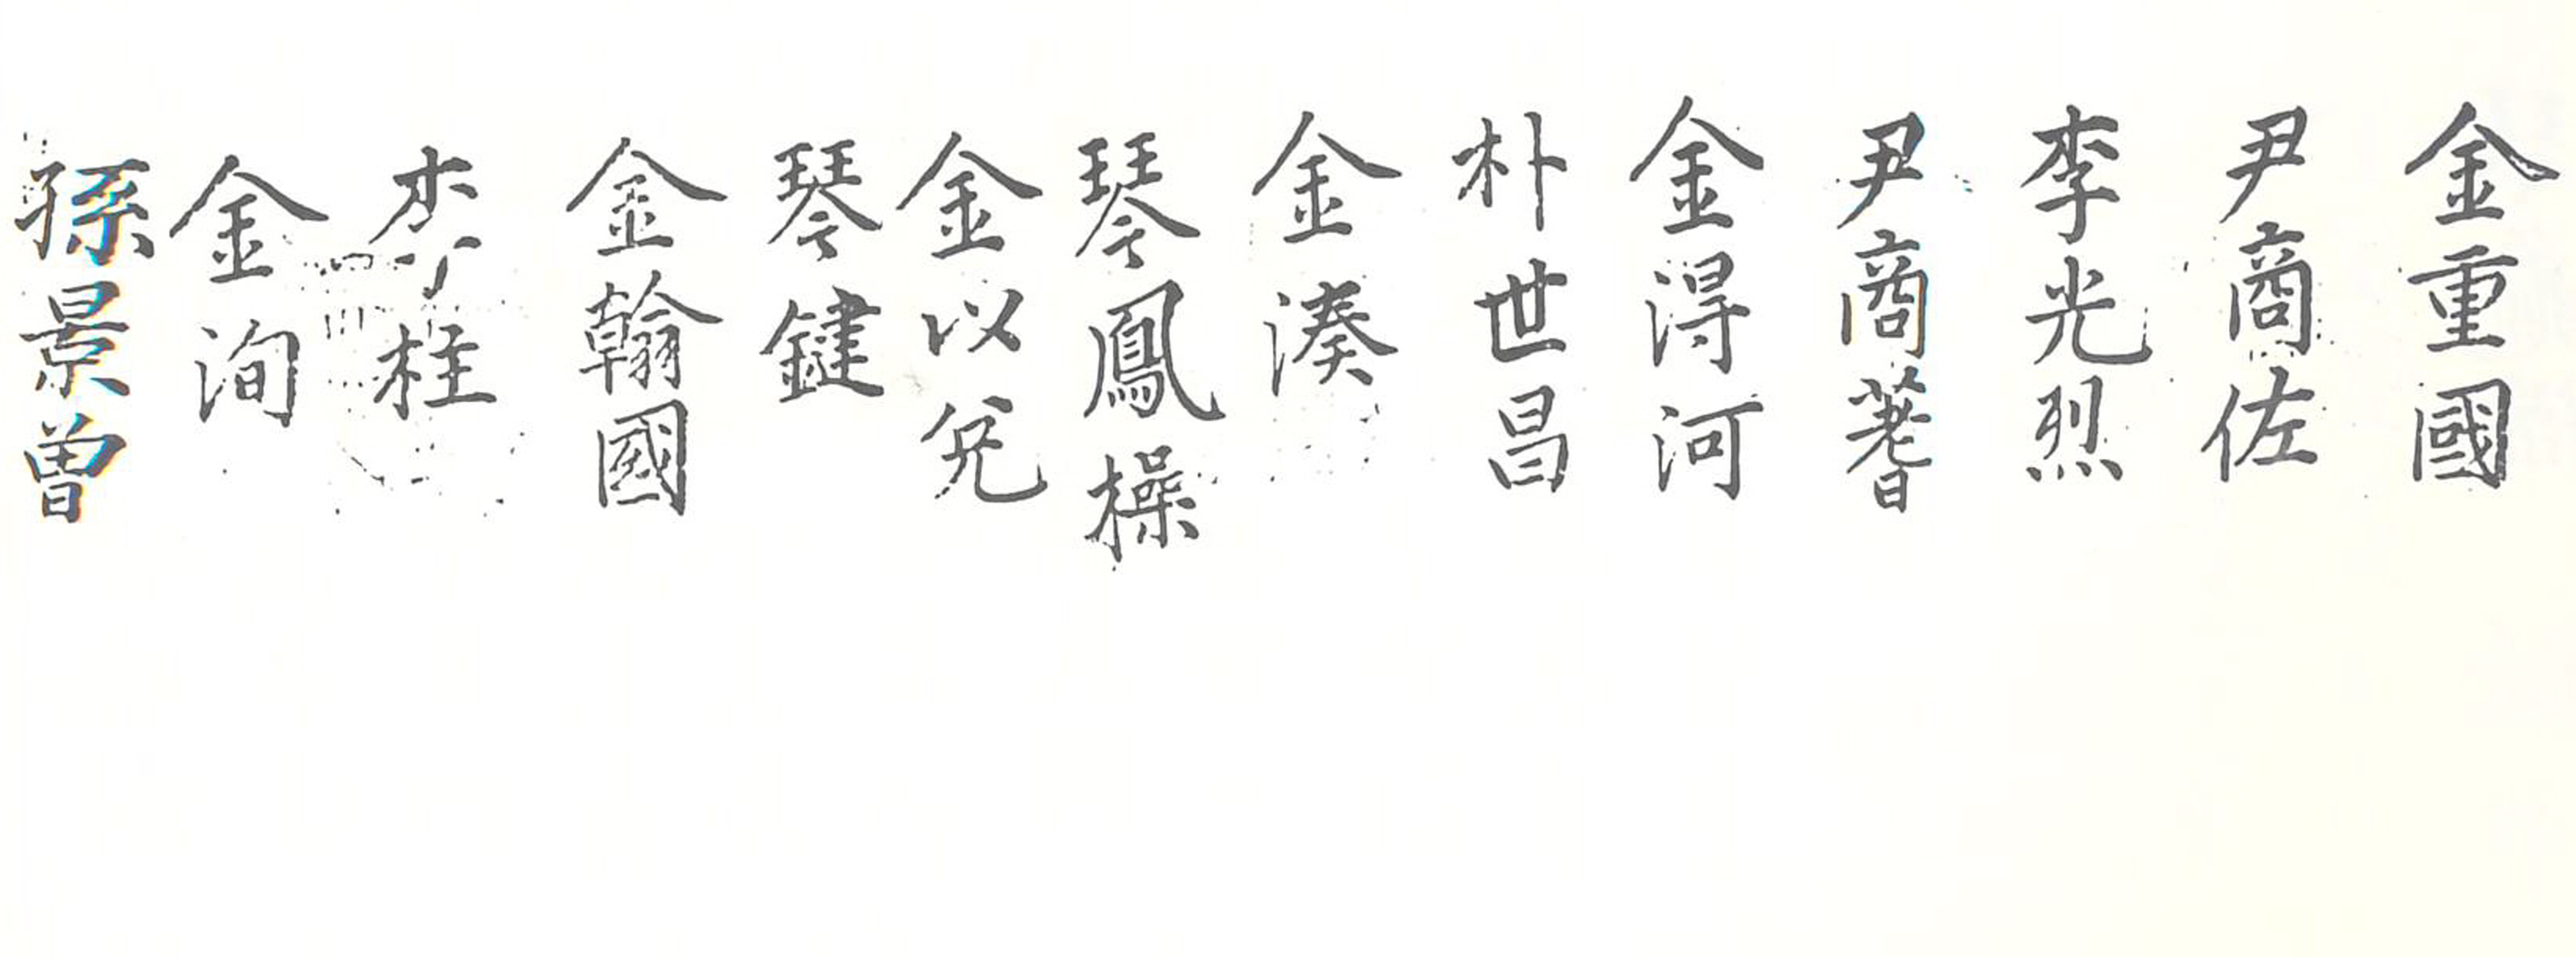 金重國
尹商佐
李光烈
尹商蓍
金得河
朴世昌
金湊
琴鳳操
金以兌
琴鍵
金翰國
李柱
金洵
孫景曾